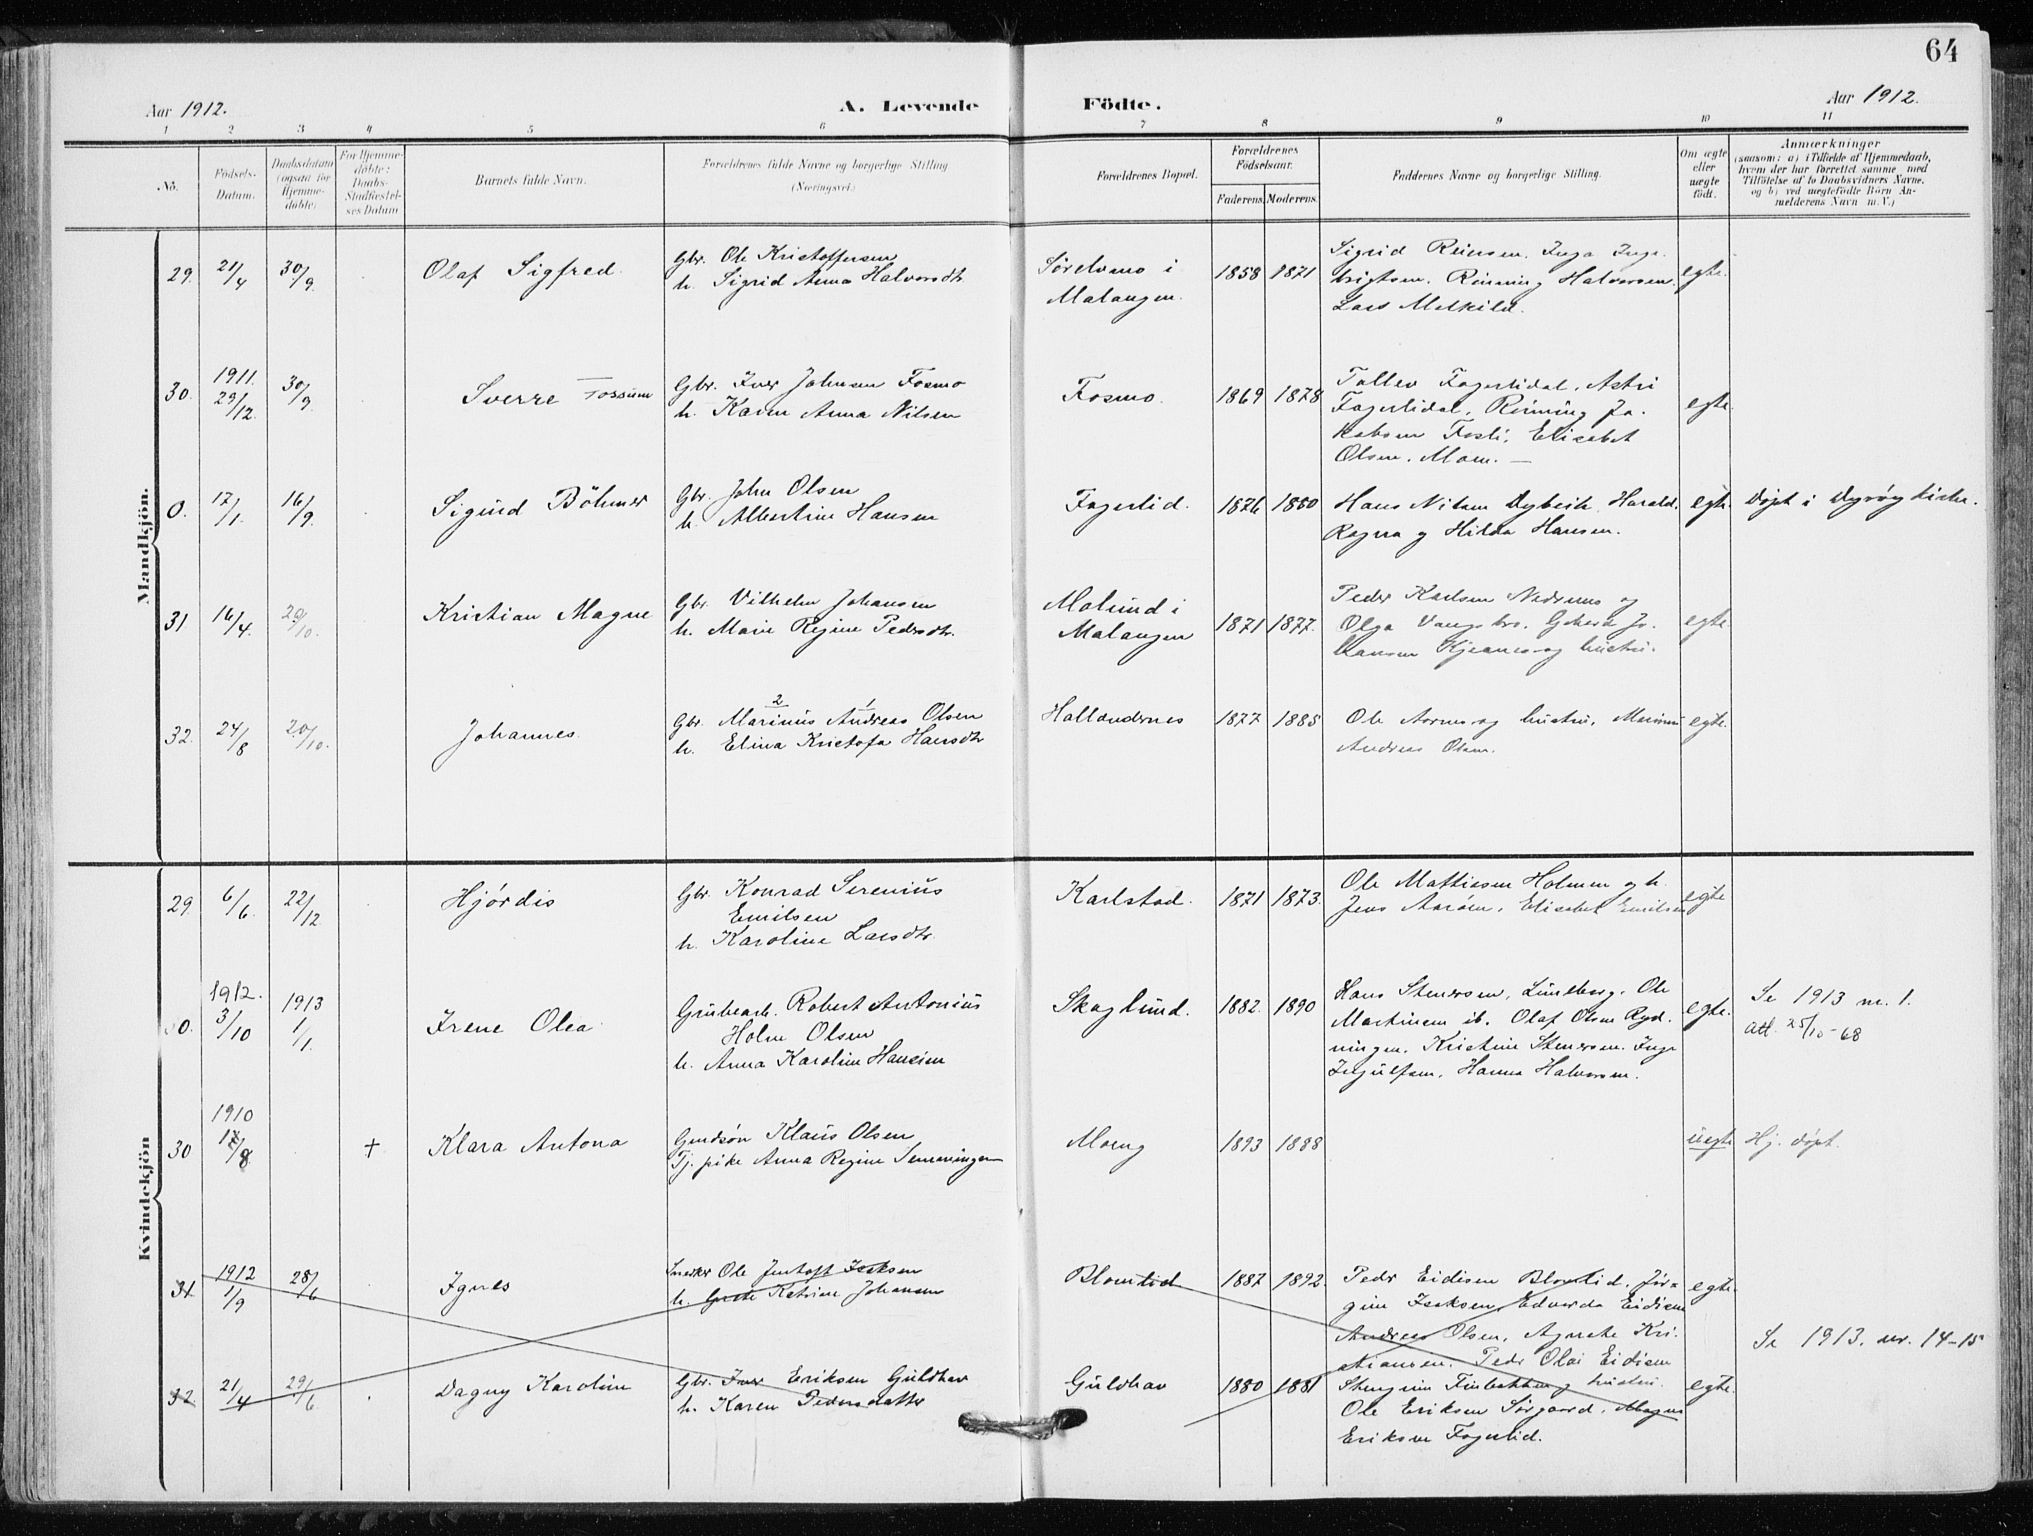 64
Aar 1912. A. Levende Födte. Aar 1912.
1 2 3 4 5 6 7 8 9 10 11
No. Födsels-Datum. Daabsdatum (ogsaa for Hjemme-döbte) For Hjemme-döbte: Daabs-Stadfæstel-ses Datum Barnets fulde Navn. Forældrenes fulde Navne og borgerlige Stilling (Næringsvei.) Forældrenes Bopæl. Forældrenes Födselsaar. Faderens. Moderens. Faddernes Navne og borgerlige Stilling. Om ægte eller uægte födt. Anmærkninger (saasom: a) i Tilfælde af Hjemmedaab, hvem der har forrettet samme med Tilföielse af to Daabsvidners Navne, og b) ved uægtefödte Börn An-melderens Navn m. V.)
Mandkjön.
29. 21/4 30/9. Olaf Sigfred. Gbr. Ole Kristoffersen
h. Sigrid Anna Halvorsdtr. Sørelvmo i
Malangen. 1858 1871 Sigrid Reiersen. Inga Inge-
brigtsen. Rönning Halvorsen.
Lars Melkild. egte.
30. 1911. 29/12. 30/9. Sverre Fossum Gbr. Iver Johnsen Fosmo
h. Karen Anna Nilsen Fosmo. 1869 1878 Tollev Fagerlidal. Astri
Fagerlidal. Rönning Ja-
kobsen Fosli. Elisabet
Olsen. Moen. — egte.
0. 17/1. 16/9. Sigurd Böhmer Gbr. John Olsen
h. Albertine Hansen Fagerlid. 1876 1880 Hans Nilsen Dybvik. Harald,
Ragna g Hilda Hansen. egte. Døpt i Dyrøy kirke.
31 16/4. 20/10. Kristian Magne Gbr. Vilhelm Johansen
h. Marie Regine Pedersdtr. Molund i
Malangen 1871 1877. Peder Karlsen Nedrenes og
Olga Vangsbro. Jo-
hansen og hustru. egte.
32. 24/8 20/10. Johannes. 2 1
Gbr. Marinius Andreas Olsen
h. Elina Kristofa Hansdtr Hallandernes 1877 1885 Ole Aarnes og hustru. Marinius
Andreas Olsen. egte.
Kvindekjön
29 6/6. 22/12 Hjørdis Gbr. Konrad Serenius
Emilsen
h. Karoline Larsdtr. Karlstad. 1871 1873. Ole Mathisen Holmen og h.
Jens Aarøen. Elisabet Emilsen egte
0. 1912. 3/10 1913 1/1. Irene Olea Grubearb. Robert Antonius
Holm Olsen
h. Anna Karoline Hansen Skoglund. 1882. 1890 Hans Stenersen, Lundberg. Ole
Martinsen ib. Olaf Olsen Ryd-
ningen. Kristine Stenersen. Inga
Ingulfsen. Hanna Halvorsen. egte. Se 1913 nr. 1.
att. 25/10-68
30 1910 17/8 + Klara Antona Gaardsøn Klaus Olsen
Tj. pike Anna Regine Simmingsen Moeng 1893 1888 uegte Hj. døpt.
31. 1912 1/9 28/6 Ignes Snedker Ole Jentoft Isaksen
h. Grete Katrine Johansen Blomlid 1887 1892 Peder Eidisen Blomlid. Jør-
gine Isaksen, Edvarda Eidisen
Andreas Olsen. Agnethe Kri-
stiansen. Pedr Olai Eidisen egte.
Se 1913. nr. 14-15
32. 21/4 29/6 Dagny Karoline Gbr. Iver Eriksen Guldhav
h. Karen Pedersdatter Guldhav 1880 1881 Finbakken g hustru.
Ole Eriksen Sørgaard. Magna
Eriksen Fagerlid. egte.